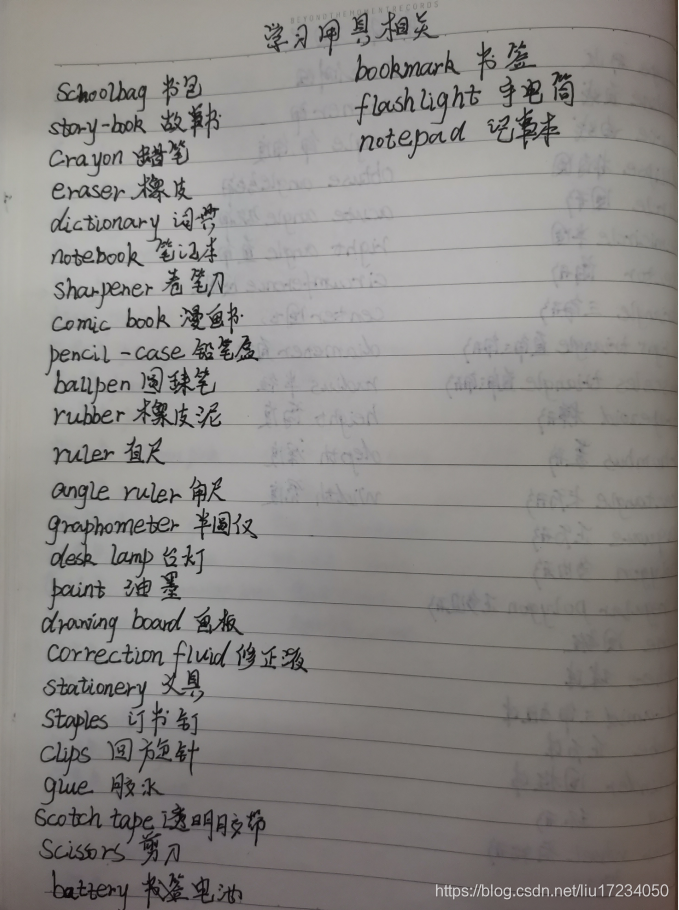 BEYONDTHEMOMENTRECORDS
学习用具相关
schoolbag 书包
story-book 故事书
crayon 蜡笔
eraser 橡皮
dictionary 词典
notebook 笔记本
sharpener 卷笔刀
comic book 漫画书
pencil-case 铅笔盒
ballpen 圆珠笔
rubber 橡皮泥
ruler 直尺
angle ruler 角尺
graphometer 半圆仪
desk lamp 台灯
paint 油墨
drawing board 画板
correction fluid 修正液
stationery 文具
staples 订书钉
clips 回旋针
glue 胶水
scotch tape 透明胶带
scissors 剪刀
battery 电池
bookmark 书签
flashlight 手电筒
notepad 记事本
https://blog.csdn.net/liu17234050